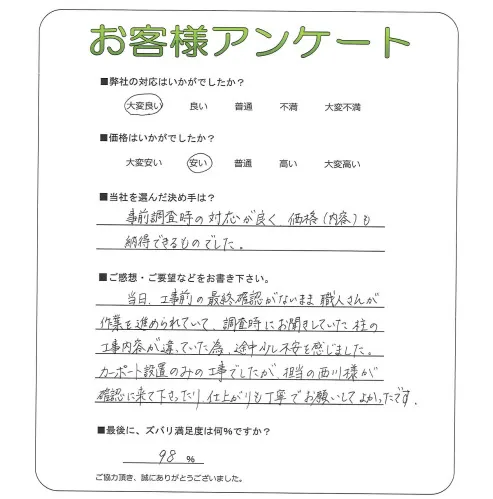 お客様アンケート
■弊社の対応はいかがでしたか?
大変良い 良い 普通 不満 大変不満
■価格はいかがでしたか?
大変安い 安い 普通 高い 大変高い
■当社を選んだ決め手は?
事前調査時の対応が良く、価格(内容)も
納得できるものでした。
■ご感想・ご要望などをお書き下さい。
当日、工事前の最終確認がないまま職人さんが
作業を進められていて、調査時にお聞きしていた柱の
工事内容が違っていた為、途中少し不安を感じました。
カーポート設置のみの工事でしたが、担当の西川様が
確認に来て下さったり、仕上がりも丁寧でお願いしてよかったです。
■最後に、ズバリ満足度は何%ですか?
98 %
ご協力頂き、誠にありがとうございました。